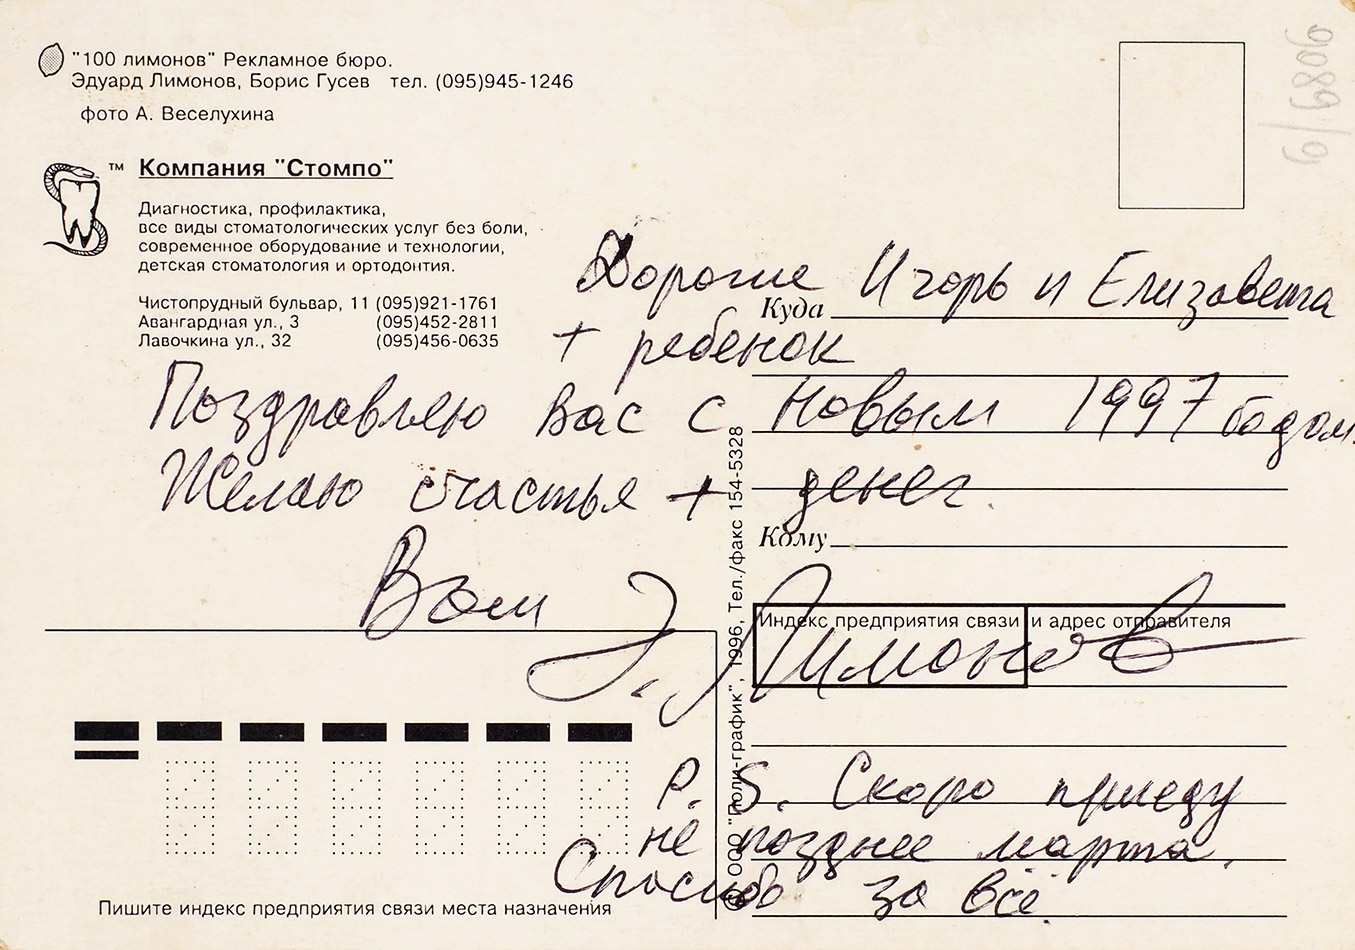 "100 лимонов" Рекламное бюро.
Эдуард Лимонов, Борис Гусев тел. (095)945-1246
фото А. Веселухина
™ Компания "Стомпо"
Диагностика, профилактика,
все виды стоматологических услуг без боли,
современное оборудование и технологии,
детская стоматология и ортодонтия.
Чистопрудный бульвар, 11 (095)921-1761
Авангардная ул., 3 (095)452-2811
Лавочкина ул., 32 (095)456-0635
9089/9
Дорогие Игорь и Елизавета
Куда
+ ребенок
Поздравляю Вас с Новым 1997 годом.
Желаю счастья + денег.
Кому
Ваш Э. Лимонов
Индекс предприятия связи и адрес отправителя
P.S. Скоро приеду
не позднее марта.
Спасибо за всё.
Пишите индекс предприятия связи места назначения
© ООО "Поли-график", 1996, Тел./факс 154-5328